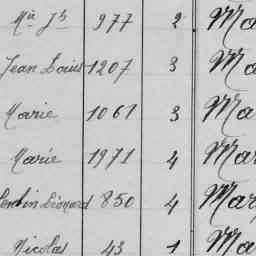 Mie Jh 977 2 Ma
Jean Louis 1207 3 Ma
Marie 1061 3 Ma
Marie 1971 4 Mar
Léonard 850 4 Mary
Nicolas 43 1 Ma